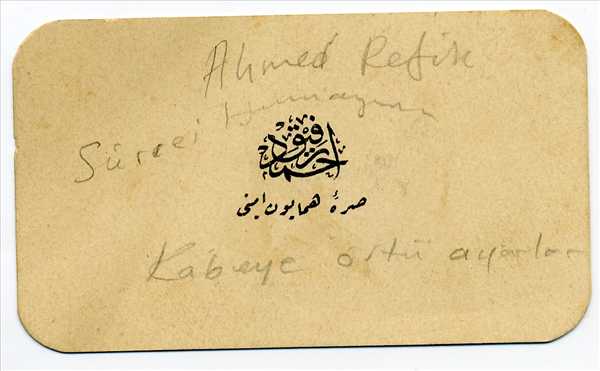 Ahmed Refik
Sürrei Humayun
احمد رفیق
صرهٔ همایون امینی
Kabeye örtü ayarlar